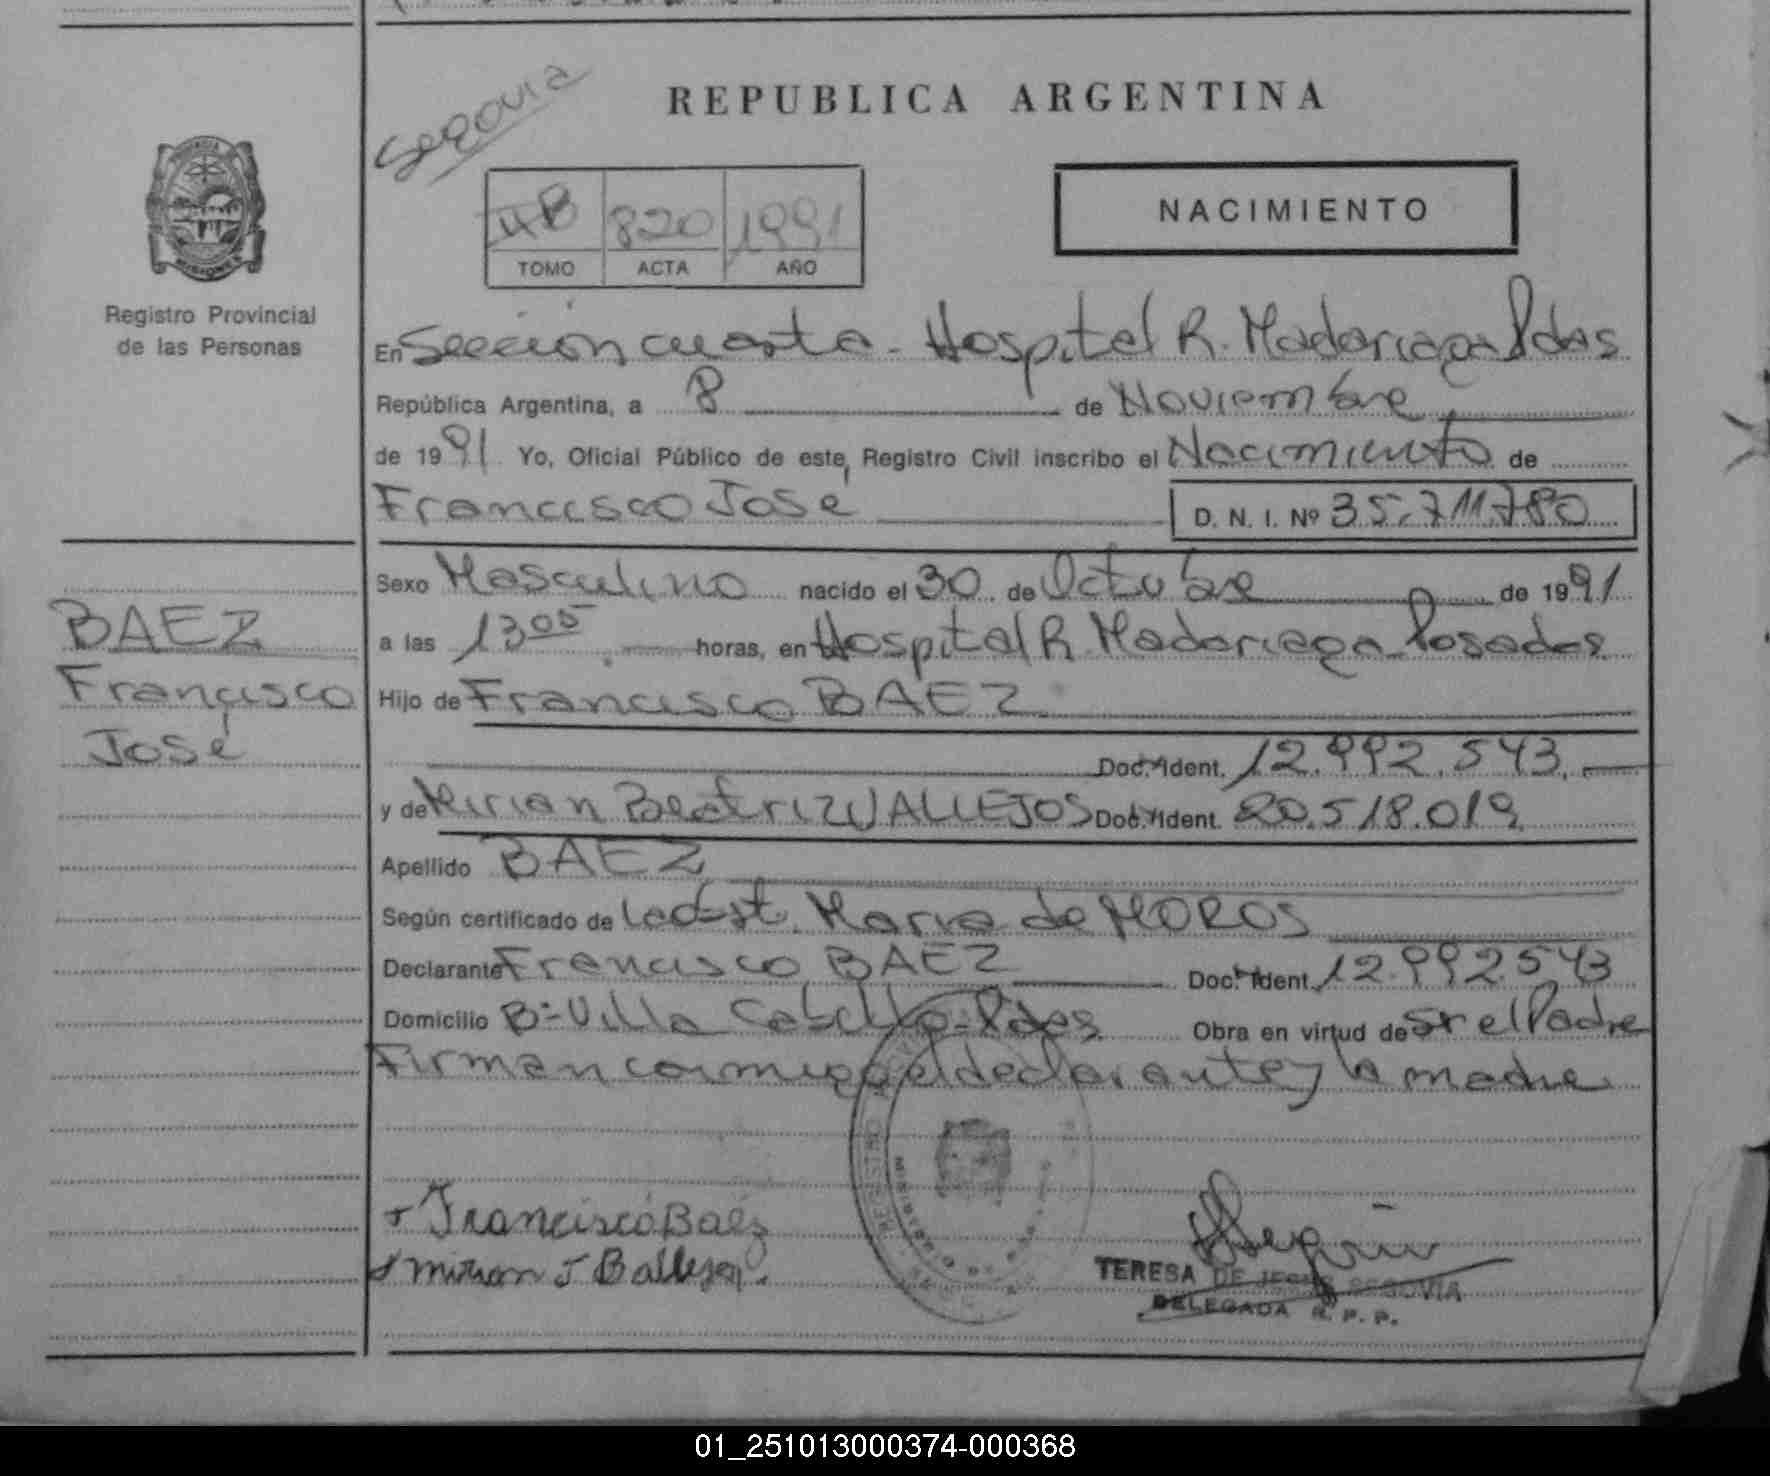 Segovia
REPUBLICA ARGENTINA
PROVINCIA
MISIONES
Registro Provincial
de las Personas
820 1991
TOMO ACTA AÑO
NACIMIENTO
En Sección cuarta - Hospital R. Madariaga Pdas
República Argentina, a 8 de Noviembre
de 1991 Yo, Oficial Público de este Registro Civil inscribo el Nacimiento de
Francisco José D. N. I. Nº 35.711.780
Sexo Masculino nacido el 30 de Octubre de 1991
a las 13 05 horas, en Hospital R. Madariaga Posadas
BAEZ
Francisco
José
Hijo de Francisco BAEZ
Doc. Ident. 12.992.543
y de Mirian Beatriz VALLEJOS Doc. Ident. 20.518.019
Apellido BAEZ
Según certificado de Obst. Maria de MOROS
Declarante Francisco BAEZ Doc. Ident. 12.992.543
Domicilio Bº Villa Cabello - Pdas Obra en virtud de ser el Padre
Firman conmigo el declarante y la madre
Francisco Baez
TERESA DE JESUS SEGOVIA
DELEGADA R. P. P.
01_251013000374-000368